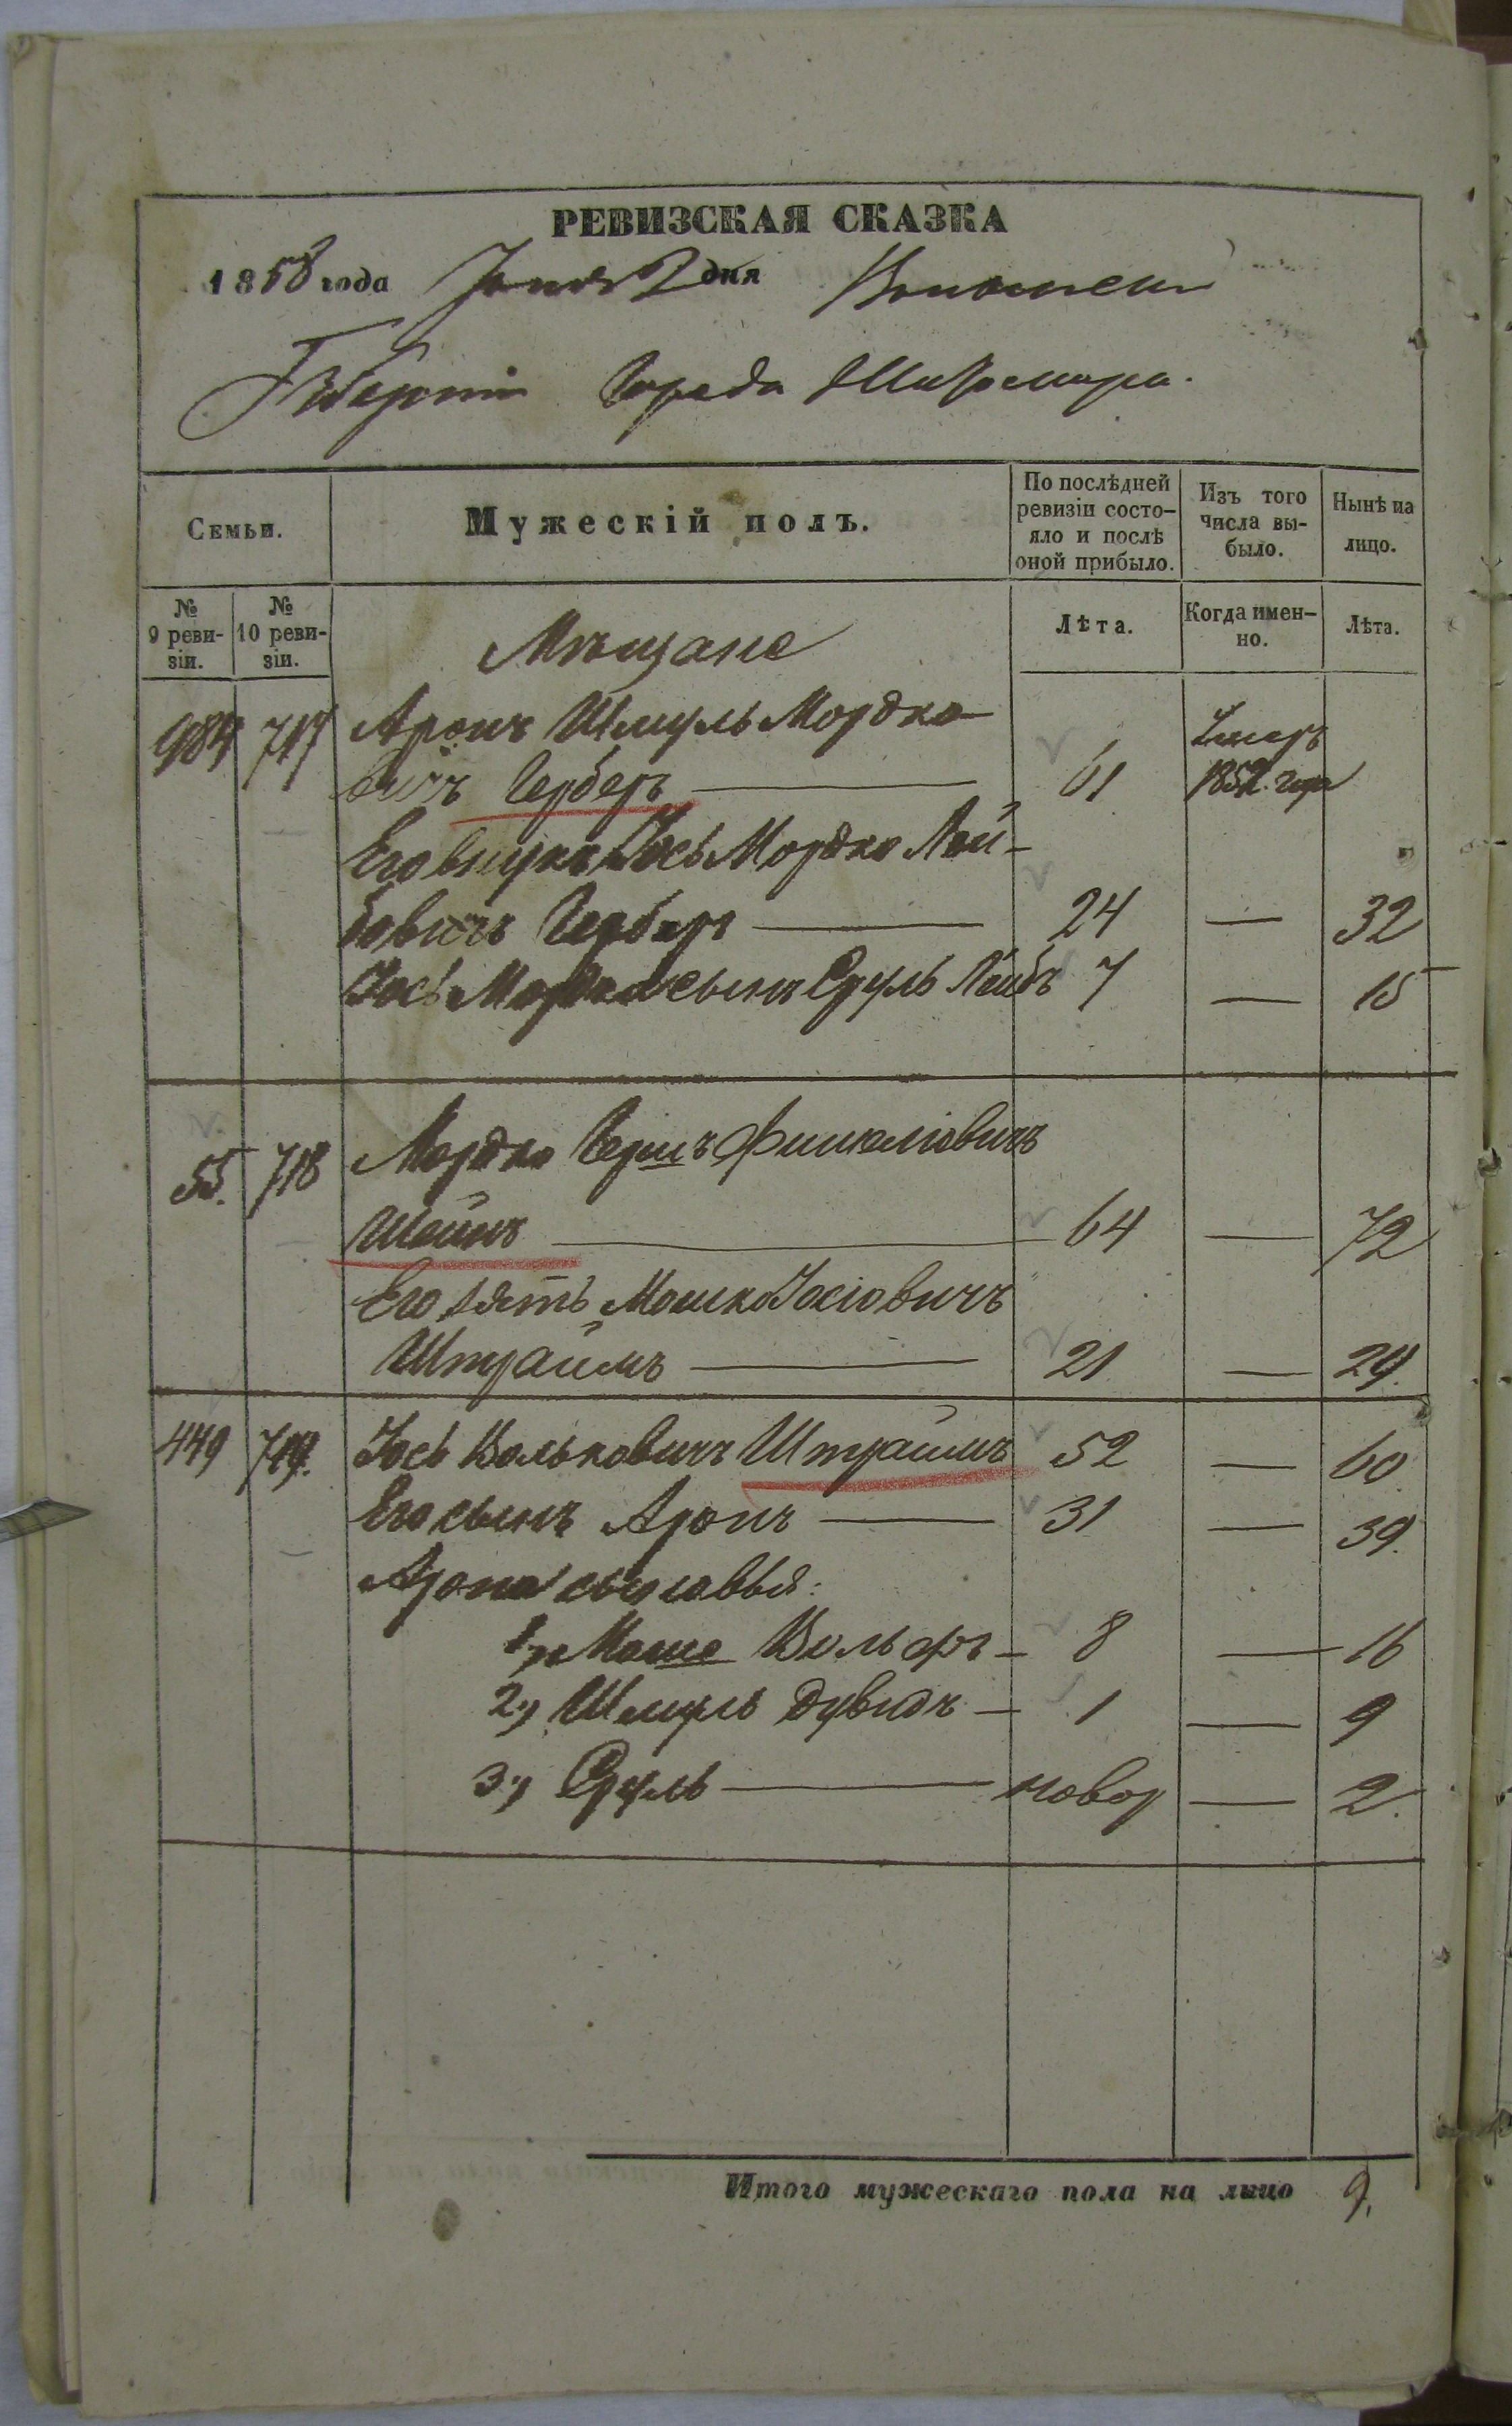 РЕВИЗСКАЯ СКАЗКА
1858 года Іюня 2 дня Волынской
Губерніи Города Житомира.
Семьи.
Мужескій полъ.
По послѣдней ревизіи состо-
яло и послѣ
оной прибыло.
Изъ того
числа вы-
было.
Нынѣ на
лицо.
№
9 реви-
зіи.
№
10 реви-
зіи.
Лѣта.
Когда имен-
но.
Лѣта.
Мѣщане
984 717 Аронъ Шмуль Мордко-
вичъ Герберъ — 61 Умеръ 1852 года
Его внукъ Іось Мордко Лей-
бовичъ Герберъ — 24 — 32
Іось Мордки сынъ Сруль Лейбъ 7 — 15
55. 718 Мордко Гершъ Фишелiовичъ
Шейнъ — 64 — 72
Его зять Мошко Іосіовичъ
Штраймъ — 21 — 29.
449 719. Іось Вольковичъ Штраймъ 52 — 60
Его сынъ Аронъ — 31 — 39.
Арона сыновья:
1) Моше Вольфъ — 8 — 16
2) Шмуль Дувидъ — 1 — 9
3) Сруль — новор — 2.
Итого мужескаго пола на лицо 9.